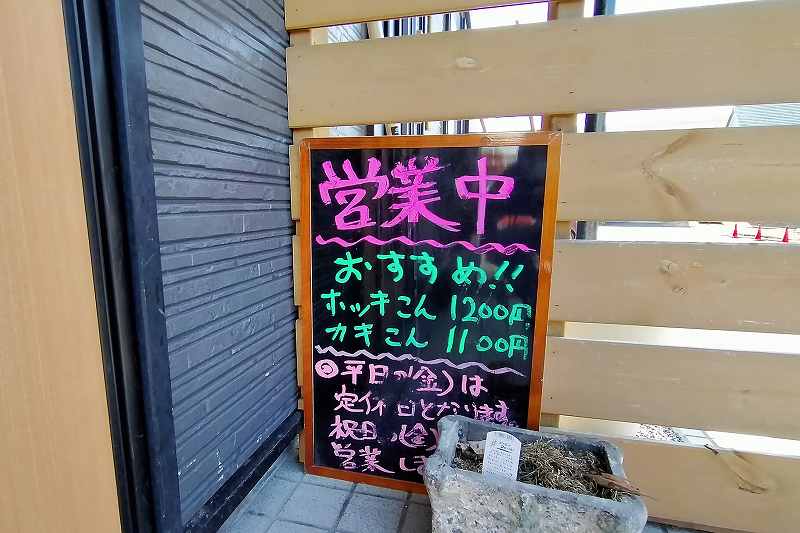 営業中
おすすめ!!
ホッキこん 1200円
カキこん 1100円
◎平日の(金)は
定休日となります
祝日(金)
営業し